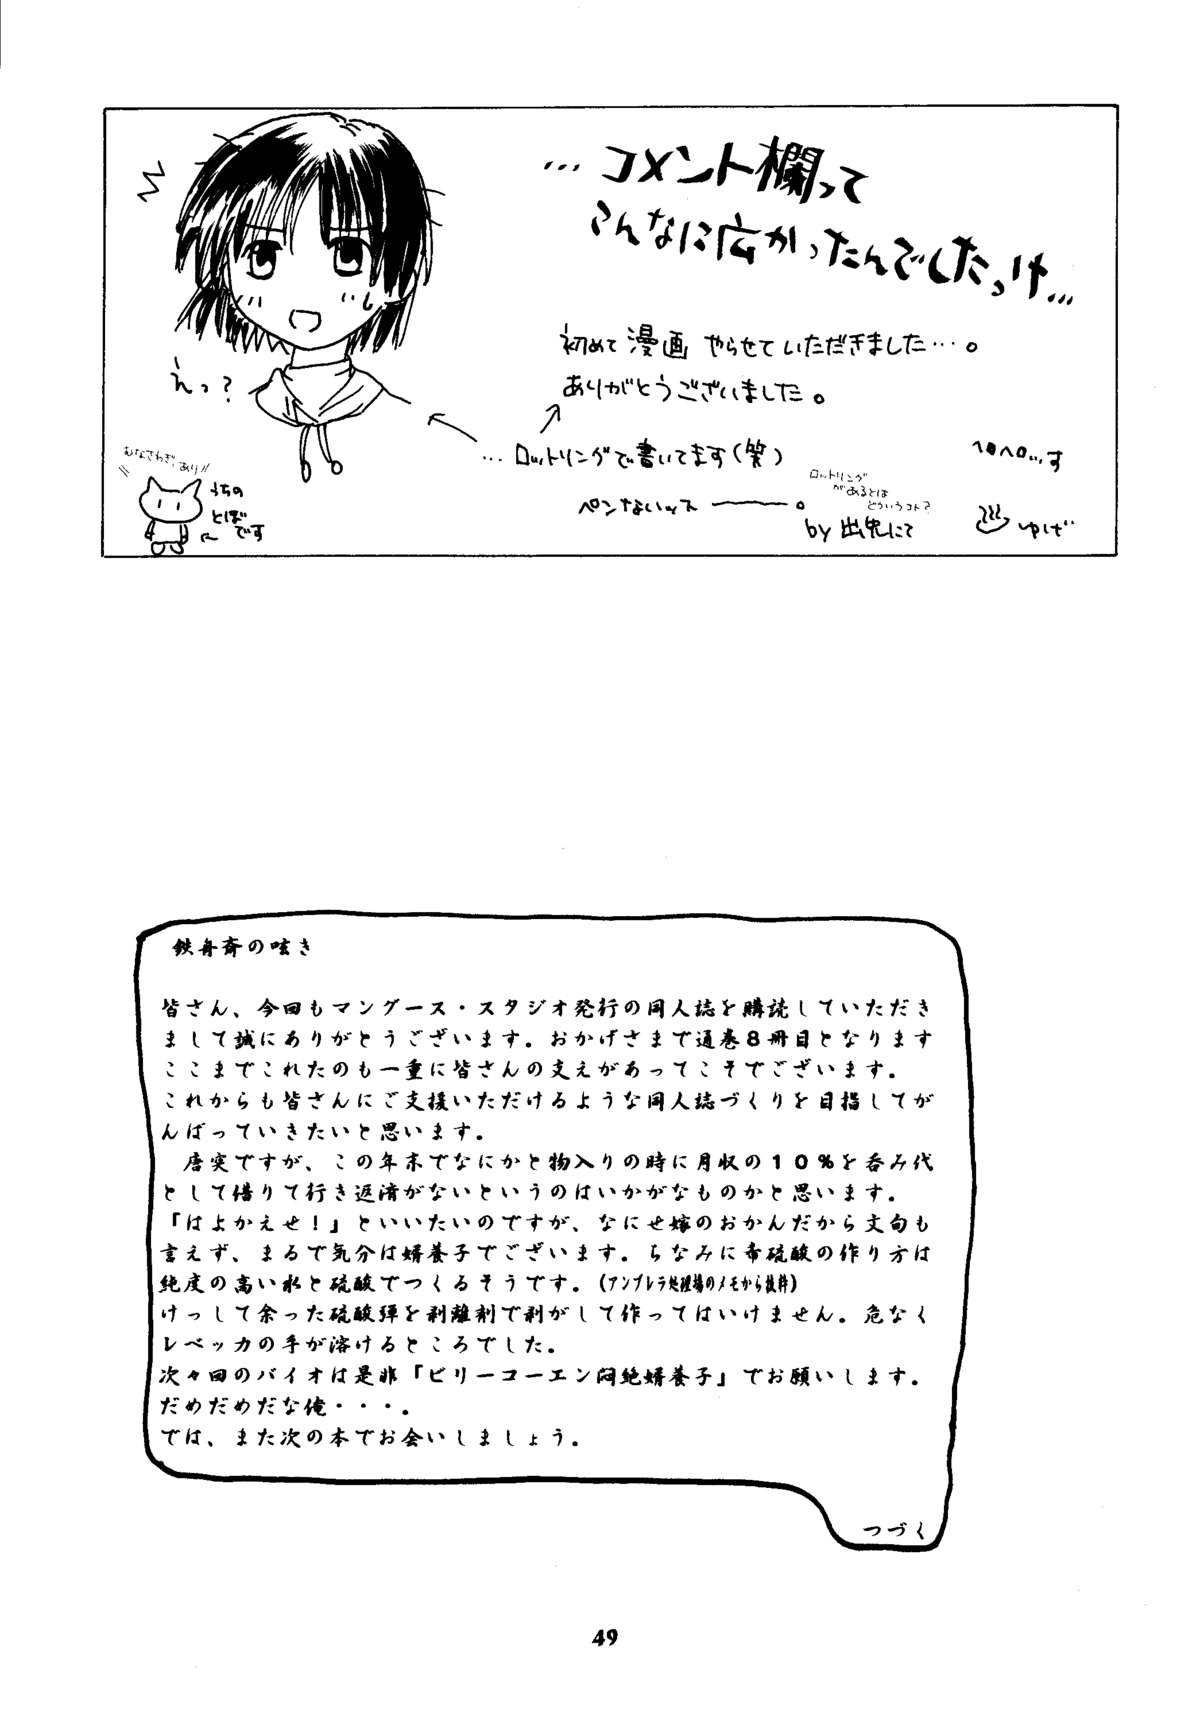 …コメント欄って
こんなに広かったんでしたっけ…
初めて漫画やらせていただきました…。
ありがとうございました。
えっ?
…ロットリングで書いてます(笑)
ペンないッス――。
ロットリング
があるとは
どういうコト?
ヘロヘロ…っす
むなさわぎ、あり
うちの
とぼ
です
by 出鬼にて
ゆげ
鉄舟斎の呟き
皆さん、今回もマングース・スタジオ発行の同人誌を購読していただき
まして誠にありがとうございます。おかげさまで通巻8冊目となります
ここまでこれたのも一重に皆さんの支えがあってこそでございます。
これからも皆さんにご支援いただけるような同人誌づくりを目指してが
んばっていきたいと思います。
唐突ですが、この年末でなにかと物入りの時に月収の10%を呑み代
として借りて行き返済がないというのはいかがなものかと思います。
「はよかえせ!」といいたいのですが、なにせ嫁のおかんだから文句も
言えず、まるで気分は婿養子でございます。ちなみに希硫酸の作り方は
純度の高い水と硫酸でつくるそうです。(アンブレラ処理場のメモから抜粋)
けっして余った硫酸弾を剥離剤で剥がして作ってはいけません。危なく
レベッカの手が溶けるところでした。
次々回のバイオは是非「ビリーコーエン悶絶婿養子」でお願いします。
だめだめだな俺・・・。
では、また次の本でお会いしましょう。
つづく
49